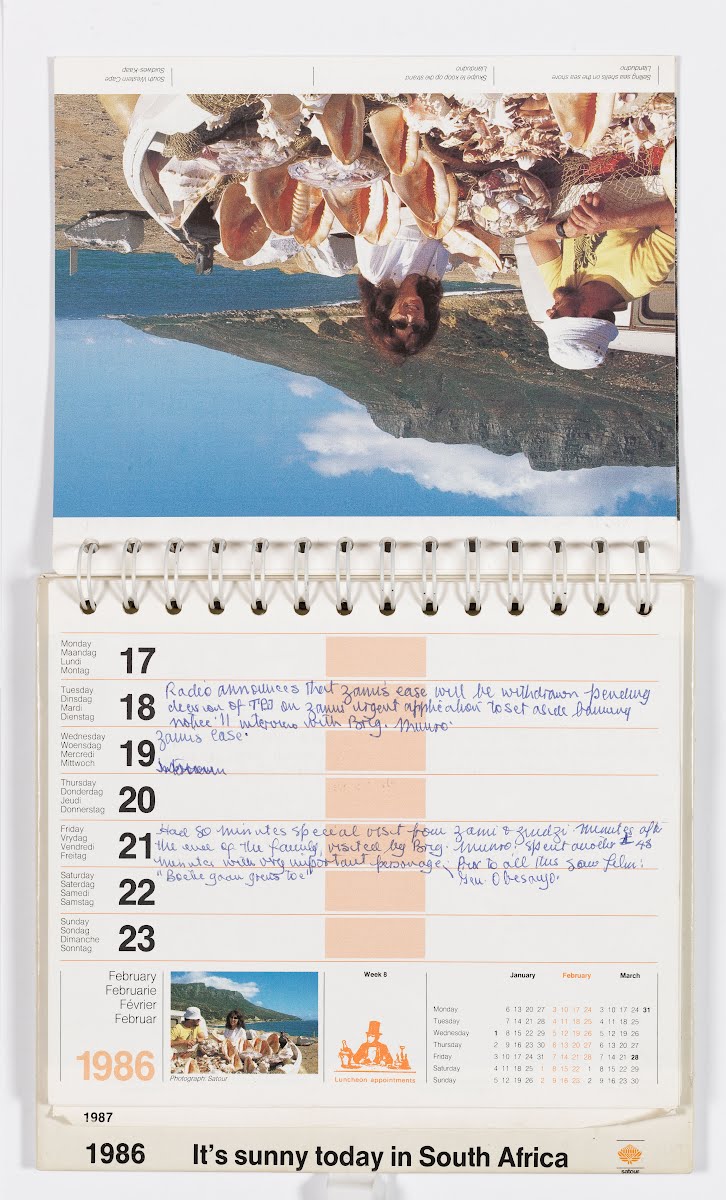 Selling sea shells on the sea shore
Llandudno
Skulpe te koop op die strand
Llandudno
South Western Cape
Suidwes-Kaap
Monday
Maandag
Lundi
Montag
17
Tuesday
Dinsdag
Mardi
Dienstag
18
Radio announces that Zami's case will be withdrawn pending
decision of TPD on Zami urgent application to set aside banning
notice. 11 interview with Brig. Munro.
Wednesday
Woensdag
Mercredi
Mittwoch
19
Zami's case.
Thursday
Donderdag
Jeudi
Donnerstag
20
Friday
Vrydag
Vendredi
Freitag
21
Had 80 minutes special visit from Zami & Zindzi. Minutes after
the end of the family, visited by Brig. Munro. Spent another 48
minutes with very important personage. Prior to all this saw film:
"Boetie gaan grens toe" Gen. Obesanjo.
Saturday
Saterdag
Samedi
Samstag
22
Sunday
Sondag
Dimanche
Sonntag
23
February
Februarie
Février
Februar
1986
Photograph: Satour
Week 8
Luncheon appointments
January February March
Monday 6 13 20 27 3 10 17 24 3 10 17 24 31
Tuesday 7 14 21 28 4 11 18 25 4 11 18 25
Wednesday 1 8 15 22 29 5 12 19 26 5 12 19 26
Thursday 2 9 16 23 30 6 13 20 27 6 13 20 27
Friday 3 10 17 24 31 7 14 21 28 7 14 21 28
Saturday 4 11 18 25 1 8 15 22 1 8 15 22 29
Sunday 5 12 19 26 2 9 16 23 2 9 16 23 30
1987
1986 It's sunny today in South Africa
satour